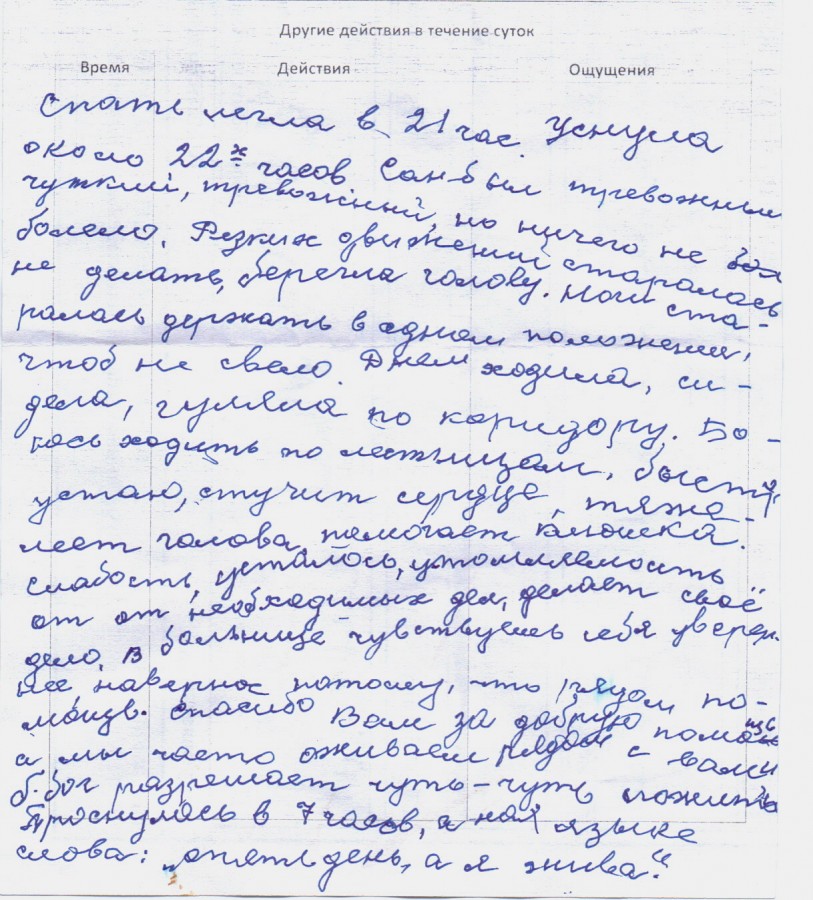 Другие действия в течение суток
Время Действия Ощущения
Спать легла в 21 час. Уснула
около 22х часов. Сон был тревожный
чуткий, тревожный, но ничего не бол
болело. Резких движений старалась
не делать, берегла голову. Ноги ста-
ралась держать в одном положении,
чтоб не свело. Днем ходила, си-
дела, гуляла по коридору. Бо-
юсь ходить по лестницам, быстро
устаю, стучит сердце, тяже-
леет голова, помогает
слабость, усталось, утомляемость
от от необходимых дел, делает своё
дело. В больнице чувствуешь себя уверен-
нее, наверное потому, что рядом по-
мощь. Спасибо Вам за добрую помощь
а мы часто оживаем рядом с вами
б. бог разрешает чуть-чуть пожить
Проснулась в 7 часов, а на языке
слова: „опять день, а я жива“.